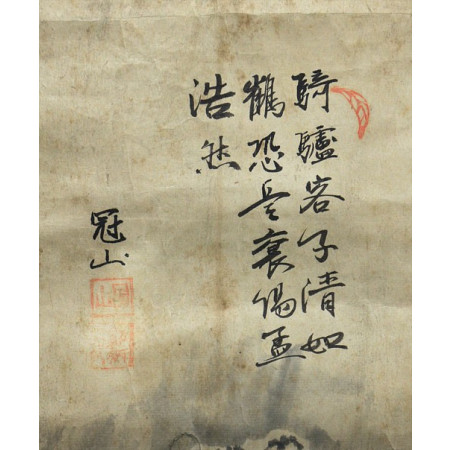 騎驢客子清如
鶴恐是襄陽孟
浩然
冠山